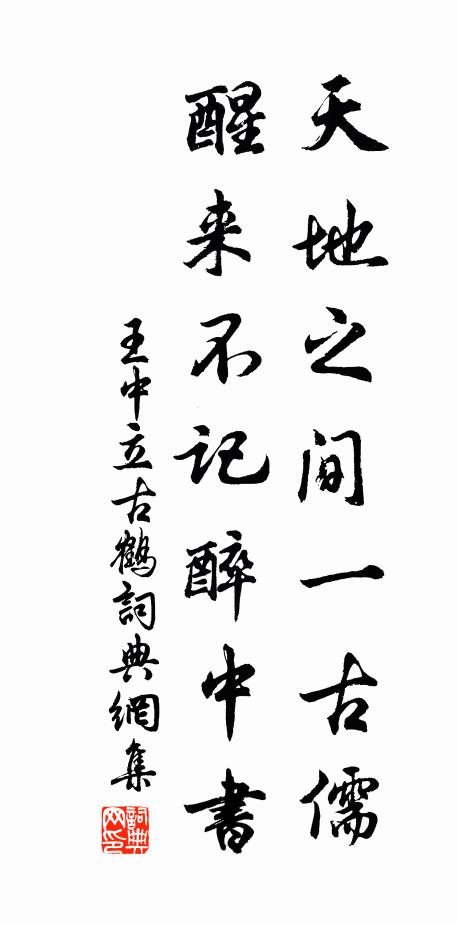 天地之间一古儒
醒来不记醉中书
王中立古鹤词典网集
詞典
网印